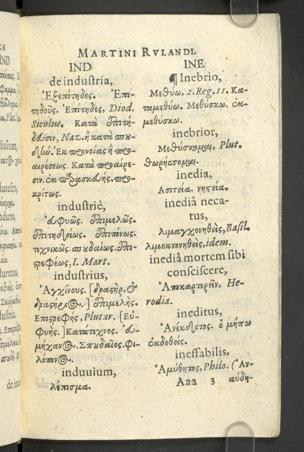 MARTINI RVLANDI
IND
de industria,
Ἐξεπίτηδες. Ἐπι-
τηδοὺς. Ἐπίτηδες, Diod.
Siculus. Κατὰ ἐπιτή-
δευσιν, Naz. ἢ κατὰ σπου-
δὴν. Ἐκ προνοίας ἢ προ-
αιρέσεως. Κατὰ προαίρε-
σιν.
κρίτως.
industriè,
Εὐφυῶς. Ἐπιμελῶς.
Ἐπιτηδείως. Ἐπιπόνως.
τεχνικῶς. σπουδαίως. Ἐπι-
στρεφέως, I. Mart.
industrius,
Ἀγχίνους. [δραστὴρ, &
δραστήριος.] ἐπιμελής.
Ἐπιστρεφὴς, Plutar. [Εὐ-
φυής.] Κατάτεχνος. Εὐ-
μήχανος. Σπουδαῖος. Φι-
λόπονος.
induuium,
λέπισμα.
INE
¶ Inebrio,
Μεθύω, 2. Reg. 11. Κα-
ταμεθύω. Μεθύσκω. ἐκ-
μεθύσκω.
inebrior,
Μεθύσκομαι, Plut.
θωρήσσομαι.
inedia,
Ἀσιτία. νηστεία.
inediâ neca-
tus,
λιμαγχονηθεὶς, Basil.
λιμοκτονηθεὶς, idem.
inediâ mortem sibi
consciscere,
Ἀποκαρτερεῖν. He-
rodia.
ineditus,
Ἀνέκδοτος. ὁ μήπω
ἐκδοθείς.
ineffabilis,
Ἀμύθητος, Philo. (Ἀν-
Aaa 3 αύδη-